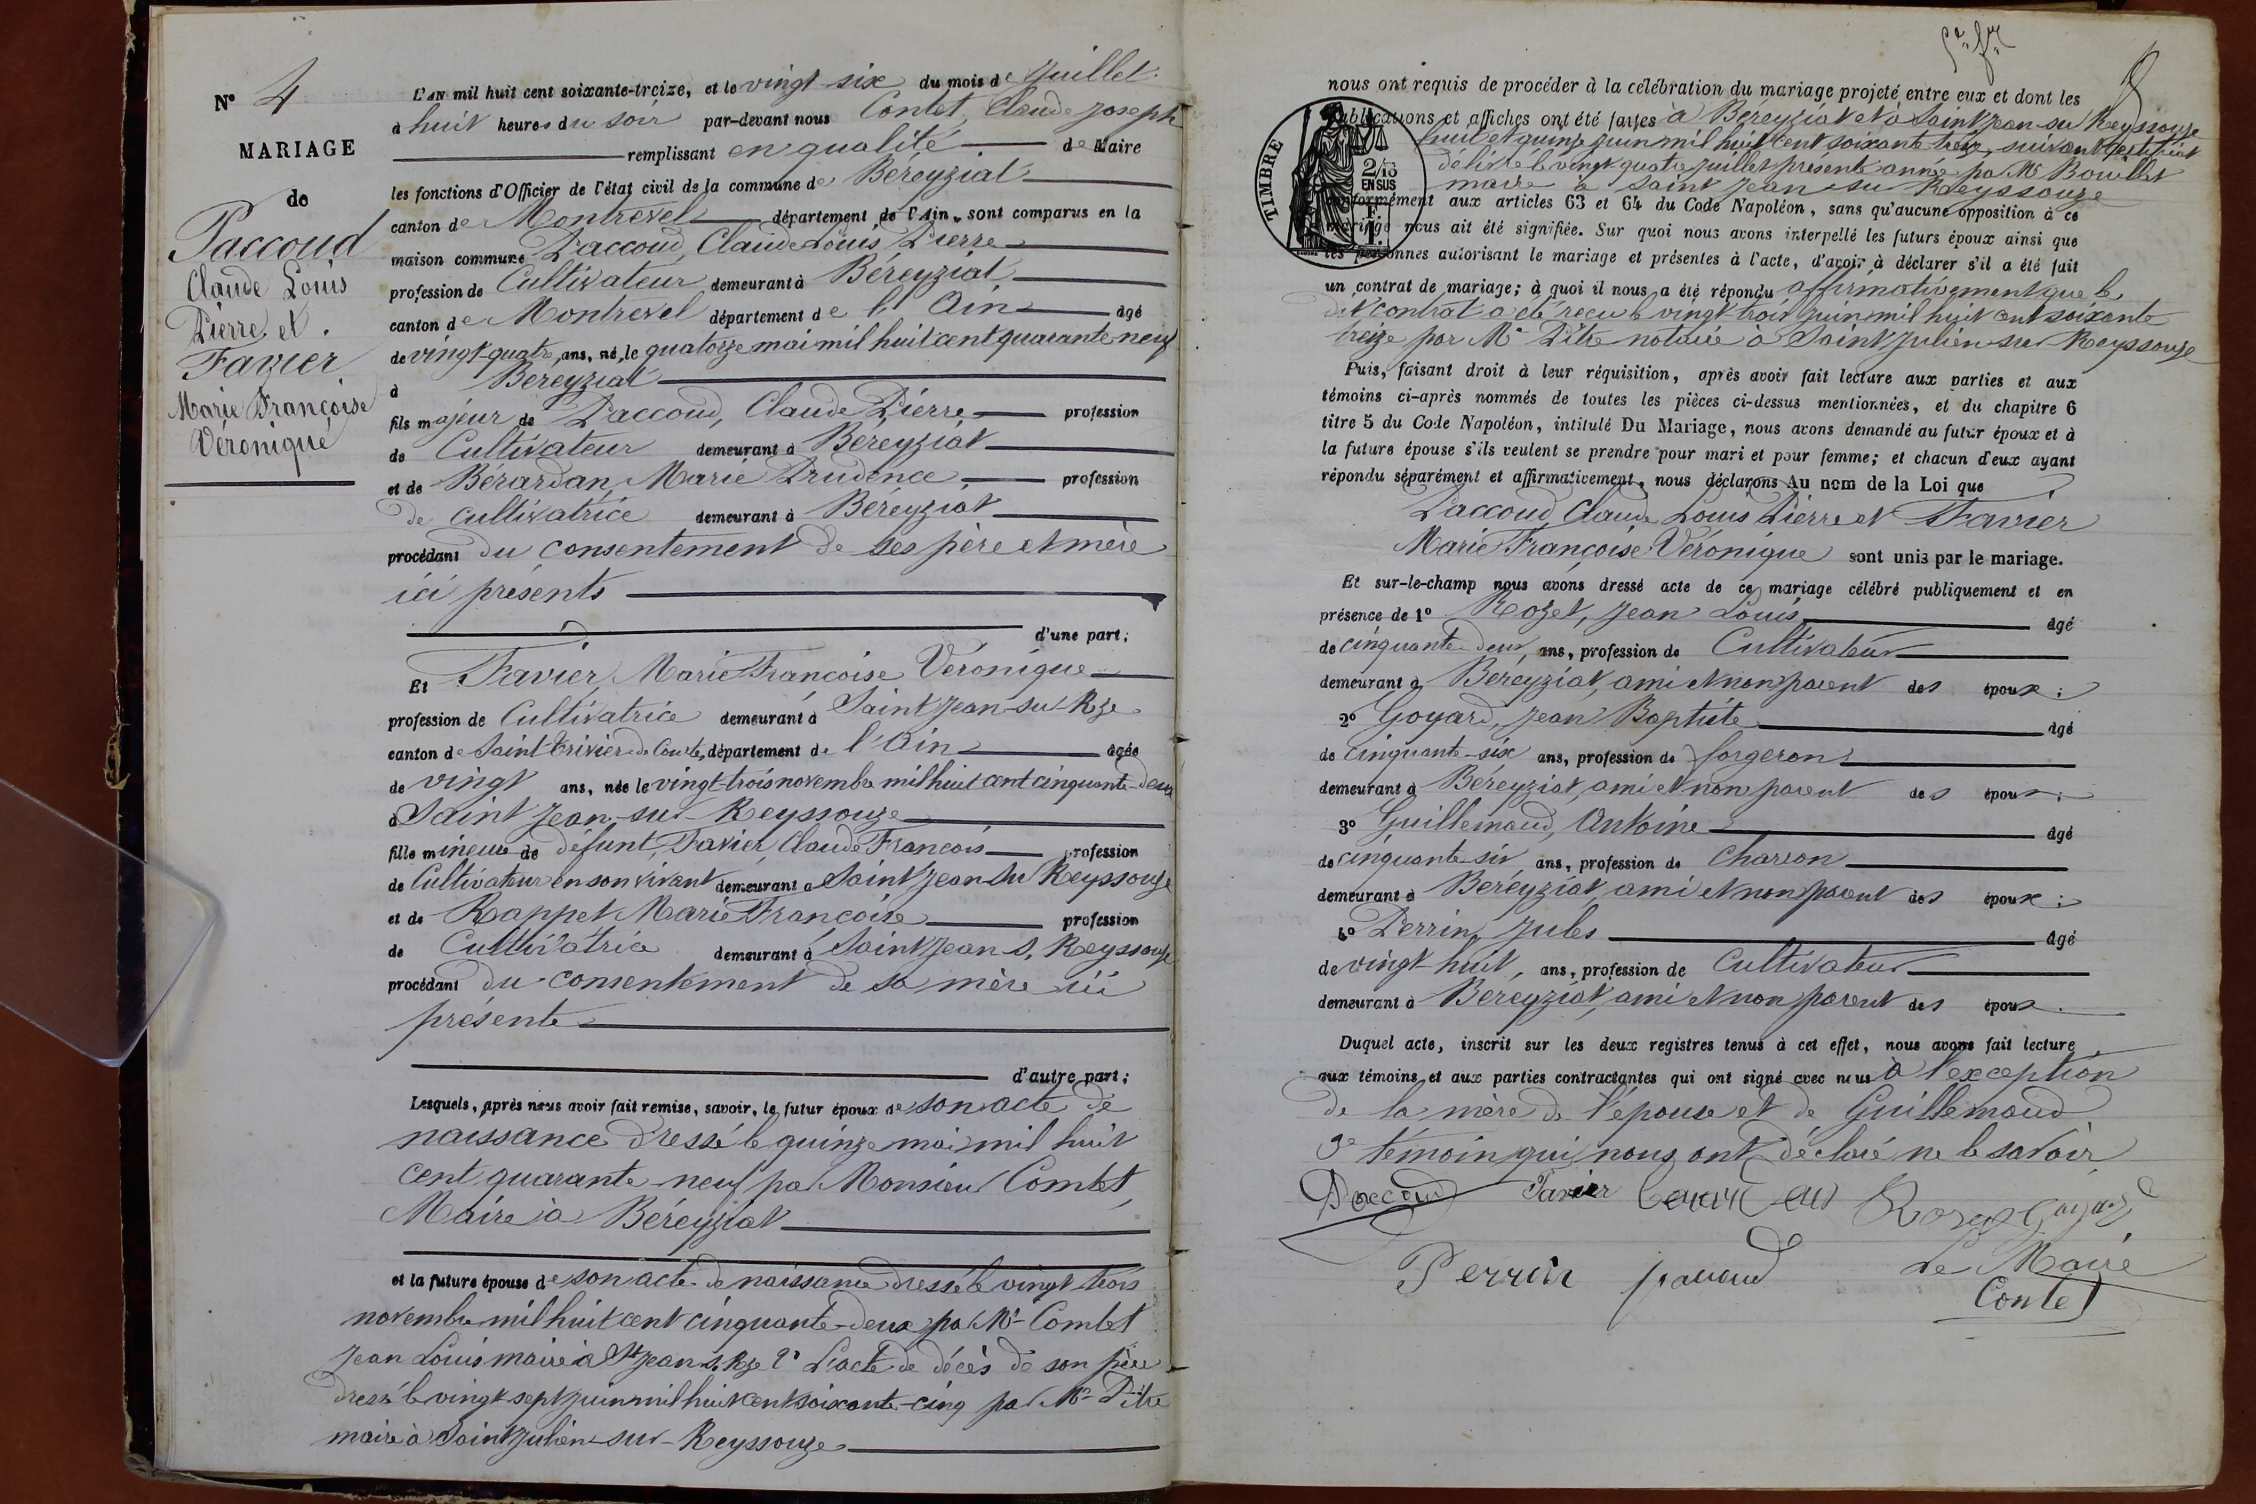 N° 4
MARIAGE
de
Paccoud
Claude Louis
Pierre et
Favier
Marie Françoise
Véronique
L'AN mil huit cent soixante-treize, et le vingt six du mois de Juillet
à huit heures du soir par-devant nous Contet, Claude Joseph
remplissant en qualité de Maire
les fonctions d'Officier de l'état civil de la commune de Béréyziat
canton de Montrevel département de l'Ain, sont comparus en la
maison commune Paccoud, Claude Louis Pierre
profession de Cultivateur demeurant à Béréyziat
canton de Montrevel département de l'Ain âgé
de vingt-quatre ans, né le quatorze mai mil huit cent quarante neuf
à Béréyziat
fils majeur de Paccoud, Claude Pierre profession
de Cultivateur demeurant à Béréyziat
et de Bérardan, Marie Prudence profession
de cultivatrice demeurant à Béréyziat
procédant du consentement de ses père et mère
ici présents
d'une part;
Et Favier, Marie Françoise Véronique
profession de Cultivatrice demeurant à Saint Jean-sur-Rze
canton de Saint Trivier de Courtes, département de l'Ain âgée
de vingt ans, née le vingt-trois novembre mil huit cent cinquante-deux
à Saint Jean-sur-Reyssouze
fille mineure de défunt, Favier, Claude François profession
de Cultivateur en son vivant demeurant à Saint Jean sur Reyssouze
et de Rappet Marie Françoise profession
de Cultivatrice demeurant à Saint Jean s. Reyssouze
procédant du consentement de sa mère ici
présente
d'autre part;
Lesquels, après nous avoir fait remise, savoir, le futur époux de son acte de
naissance dressé le quinze mai mil huit
cent quarante neuf par Monsieur Combet,
Maire à Béréyziat
et la future épouse de son acte de naissance dressé le vingt trois
novembre mil huit cent cinquante-deux par Mr Combet
Jean Louis maire à St Jean s. Rze 2° L'acte de décès de son père
dressé le vingt sept juin mil huit cent soixante-cinq par Mr Pitre
maire à Saint Julien-sur-Reyssouze
nous ont requis de procéder à la célébration du mariage projeté entre eux et dont les
publications et affiches ont été faites à Béréyziat et à Saint Jean sur Reyssouze
huit et quinze juin mil huit cent soixante treize, suivant certificat
délivré le vingt quatre juillet présente année par Mr Bouillet
maire à Saint Jean sur Reyssouze
conformément aux articles 63 et 64 du Code Napoléon, sans qu'aucune opposition à ce
mariage nous ait été signifiée. Sur quoi nous avons interpellé les futurs époux ainsi que
les personnes autorisant le mariage et présentes à l'acte, d'avoir à déclarer s'il a été fait
un contrat de mariage; à quoi il nous a été répondu affirmativement que le
dit contrat a été reçu le vingt-trois juin mil huit cent soixante
treize par Me Pitre notaire à Saint Julien sur Reyssouze
Puis, faisant droit à leur réquisition, après avoir fait lecture aux parties et aux
témoins ci-après nommés de toutes les pièces ci-dessus mentionnées, et du chapitre 6
titre 5 du Code Napoléon, intitulé Du Mariage, nous avons demandé au futur époux et à
la future épouse s'ils veulent se prendre pour mari et pour femme; et chacun d'eux ayant
répondu séparément et affirmativement, nous déclarons Au nom de la Loi que
Paccoud, Claude Louis Pierre et Favier
Marie Françoise Véronique sont unis par le mariage.
Et sur-le-champ nous avons dressé acte de ce mariage célébré publiquement et en
présence de 1° Rozet, Jean Louis âgé
de cinquante deux ans, profession de Cultivateur
demeurant à Béréyziat, ami et non parent des époux;
2° Goyard, Jean Baptiste âgé
de cinquante-six ans, profession de forgeron
demeurant à Béréyziat, ami et non parent des époux;
3° Guillemaud, Antoine âgé
de cinquante six ans, profession de Charron
demeurant à Béréyziat, ami et non parent des époux;
4° Perrin Jules âgé
de vingt-huit, ans, profession de Cultivateur
demeurant à Béréyziat, ami et non parent des époux.
Duquel acte, inscrit sur les deux registres tenus à cet effet, nous avons fait lecture
aux témoins et aux parties contractantes qui ont signé avec nous à l'exception
de la mère de l'épouse et de Guillemaud
3e témoin qui nous ont déclaré ne le savoir
Paccoud Favier Rozet Goyard
Perrin paccoud Le Maire
Contet
TIMBRE
2/10
EN SUS